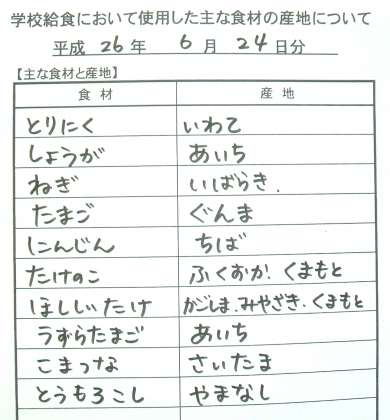 学校給食において使用した主な食材の産地について
平成 26 年 6 月 24 日分
【主な食材と産地】
食材 産地
とりにく いわて
しょうが あいち
ねぎ いばらき.
たまご ぐんま
にんじん ちば
たけのこ ふくおか.くまもと
ほししいたけ かごしま.みやざき.くまもと
うずらたまご あいち
こまつな さいたま
とうもろこし やまなし